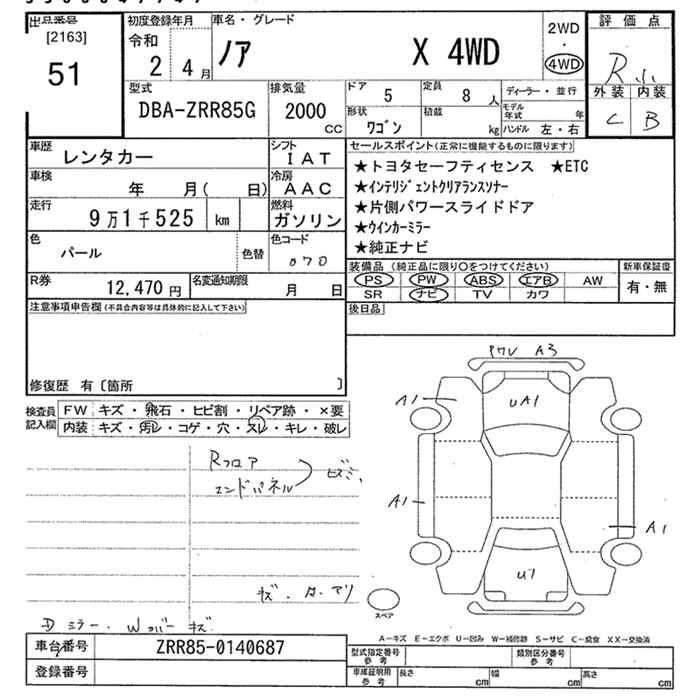 出品番号
[2163]
51
初度登録年月
令和
2 4月
車名・グレード
ノア X 4WD
2WD
・
4WD
評価点
R 小
外装 内装
C B
型式
DBA-ZRR85G
排気量
2000
CC
ドア
5
定員
8 人
形状
ワゴン
積載
kg
ディーラー・並行
モデル年式 年
ハンドル 左・右
車歴
レンタカー
シフト
IAT
車検
年 月( 日)
冷房
AAC
走行
9万1千525 km
燃料
ガソリン
色
パール
色替
色コード
070
R券
12,470 円
名変通知期限
月 日
セールスポイント(正常に機能するものに限ります)
★トヨタセーフティセンス ★ETC
★インテリジェントクリアランスソナー
★片側パワースライドドア
★ウインカーミラー
★純正ナビ
装備品(純正品に限り〇をつけてください)
PS PW ABS エアB AW
SR ナビ TV カワ
新車保証書
有・無
後日品
注意事項申告欄(不具合内容等は具体的に記入して下さい)
修復歴 有〔箇所 〕
検査員記入欄
FW キズ・飛石・ヒビ割・リペア跡・×要
内装 キズ・汚レ・コゲ・穴・スレ・キレ・破レ
Rフロア
エンドパネル
キズ・カーアリ
Dミラー・Wカバーキズ
A3
A1
UA1
A1
A1
U1
スペア
A−キズ E−エクボ U−凹み W−補修跡 S−サビ C−腐食 XX−交換済
車台番号
ZRR85-0140687
登録番号
型式指定番号
参考
類別区分番号
参考
車庫証明用
参考
長さ cm
幅 cm
高さ cm